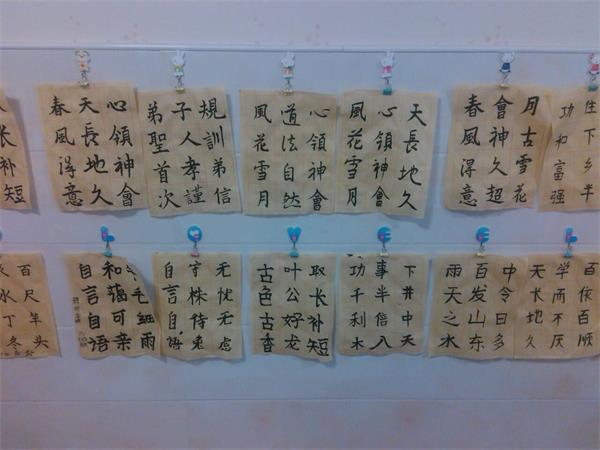 长补短
心領神會
天長地久
春風得意
規訓弟信
子人孝謹
弟聖首次
心領神會
道法自然
風花雪月
天長地久
心領神會
風花雪月
月古雪花
會神久超
春風得意
住下乡半
功和富强
百尺竿头
水丁冬
毛細雨
和藹可亲
自言自语
无忧无虑
守株待兔
自言自语
取长补短
叶公好龙
古色古香
下井中天
事半倍八
功千利木
中令日多
百发山东
雨天之水
百依百顺
学而不厌
天长地久